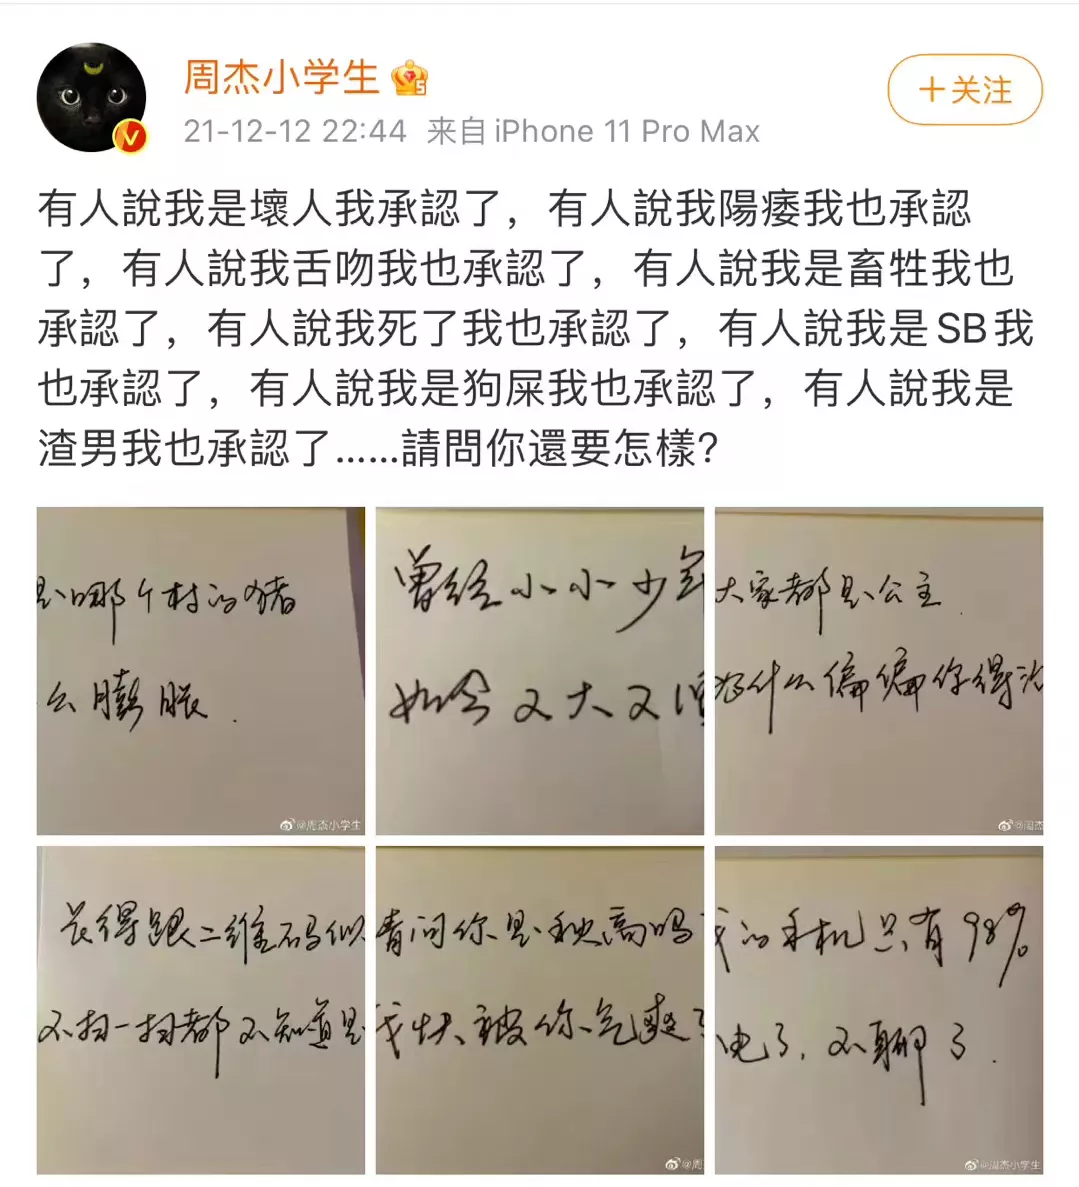 周杰小学生
+关注
21-12-12 22:44 来自 iPhone 11 Pro Max
有人說我是壞人我承認了，有人說我陽痿我也承認
了，有人說我舌吻我也承認了，有人說我是畜牲我也
承認了，有人說我死了我也承認了，有人說我是SB我
也承認了，有人說我是狗屎我也承認了，有人說我是
渣男我也承認了……請問你還要怎樣？
是哪个村的猪
么膨胀.
@周杰小学生
曾经小小少年
如今又大又
大家都是公主.
为什么偏偏你得
@周杰
长得跟二维码似
不扫一扫都不知道是
青问你是秋高吗
我快被你气爽了
@周
我的手机只有98%
电了,不聊了.
@周杰小学生